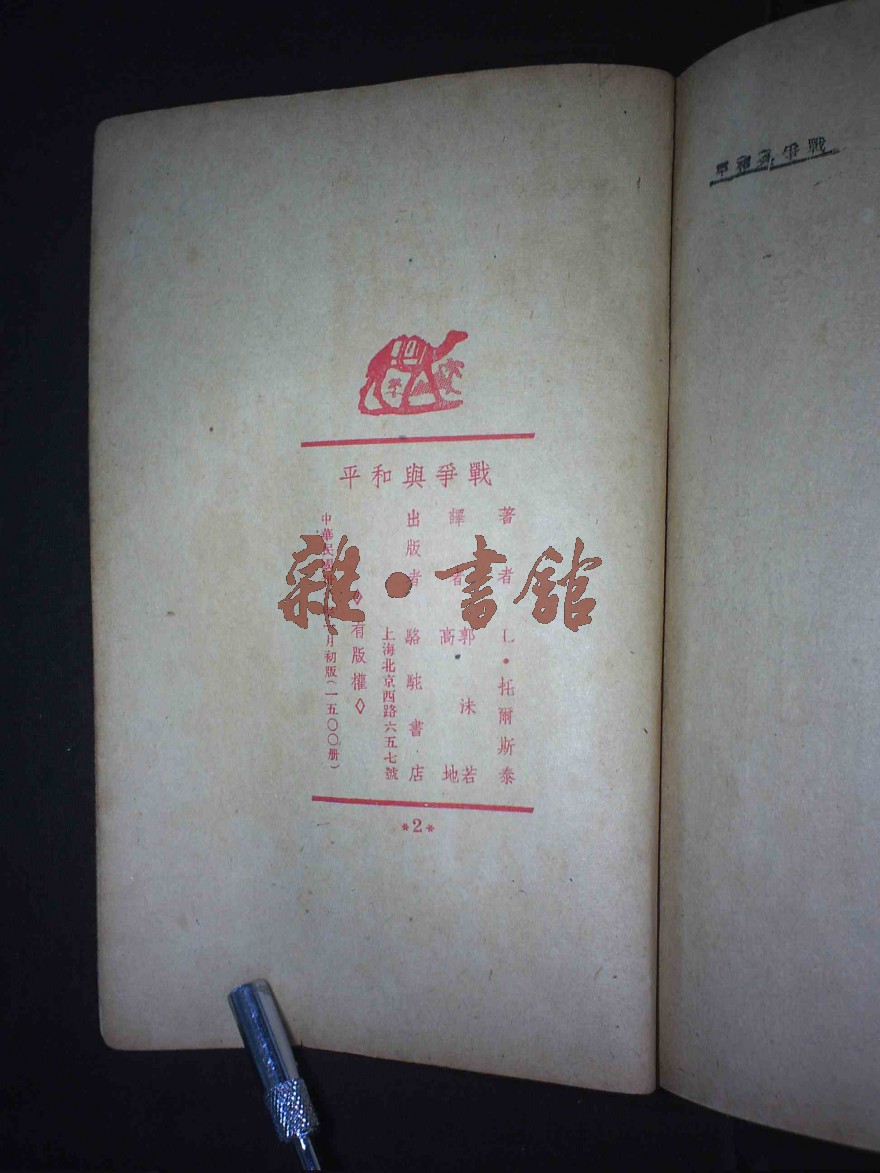 戰爭與和平
著者 L·托爾斯泰
譯者 郭沫若
高地
出版者 駱駝書店
上海北京西路六五七號
◇有版權◇
中華民國 月初版(一五〇〇册)
*2*
雜·書館
戰爭